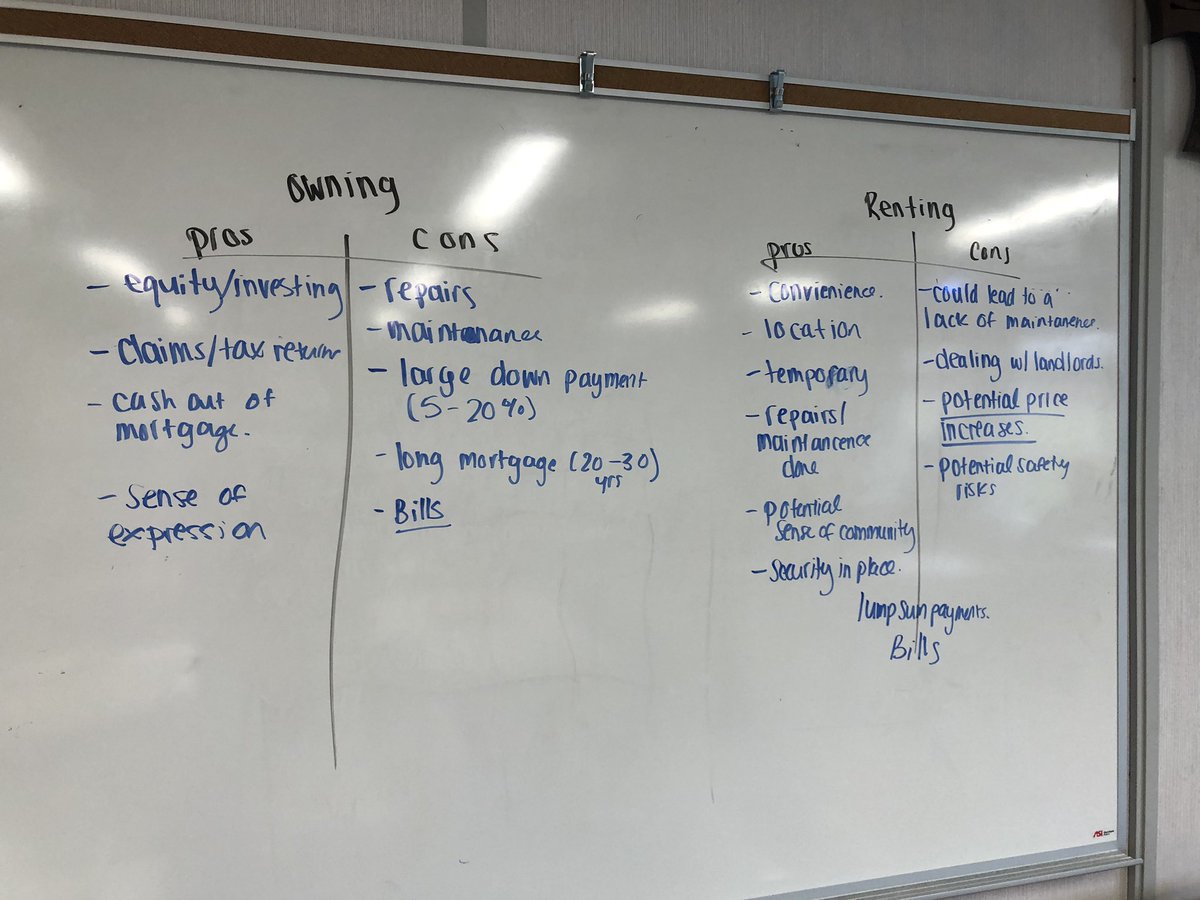 Owning
pros
cons
- equity/investing
- claims/tax return
- cash out of
mortgage.
- Sense of
expression
- repairs
- maintanance
- large down payment
(5-20%)
- long mortgage (20-30)
yrs
- Bills
Renting
pros
Cons
- convienience.
- location
- temporary
- repairs/
maintancence
done
- potential
sense of community
- security in place.
- could lead to a
lack of maintanence.
- dealing w/ landlords.
- potential price
increases.
- potential safety
risks
lump sum payments.
Bills